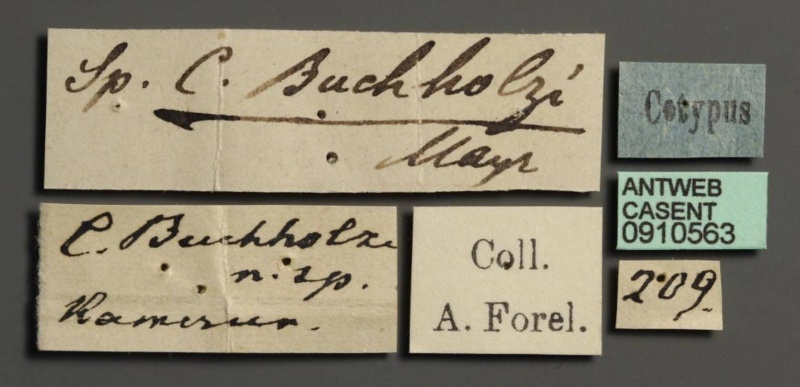 Sp. C. Buchholzi
Mayr
Cotypus
ANTWEB
CASENT
0910563
C. Buchholzi
n. sp.
Kamerun.
Coll.
A. Forel.
209.